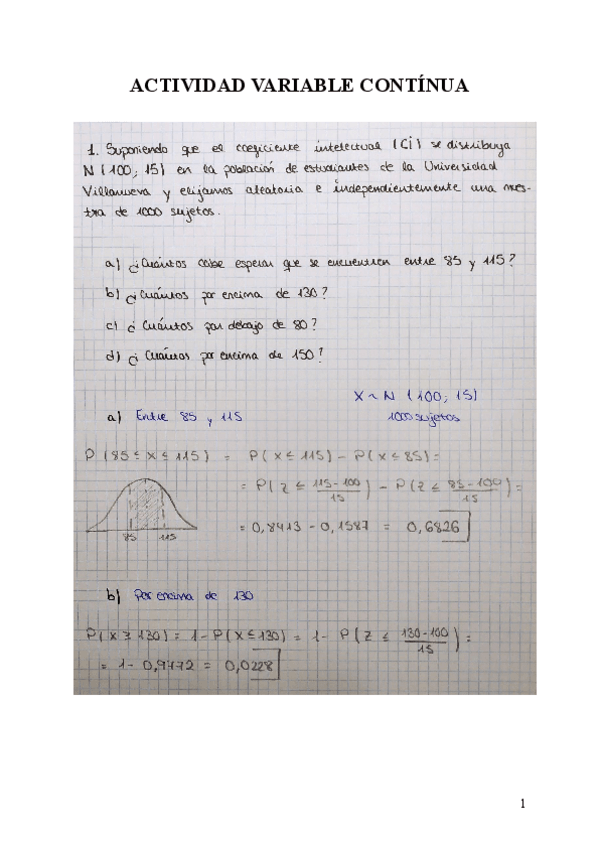 ACTIVIDAD VARIABLE CONTÍNUA
1. Suponiendo que el coeficiente intelectual (Ci) se distribuya
N (100; 15) en la población de estudiantes de la Universidad
Villanueva y elijamos aleatoria e independientemente una mues-
tra de 1000 sujetos.
a) ¿Cuántos cabe esperar que se encuentren entre 85 y 115?
b) ¿Cuántos por encima de 130?
c) ¿Cuántos por debajo de 80?
d) ¿Cuántos por encima de 150?
X ~ N (100; 15)
a) Entre 85 y 115
1000 sujetos
P (85 ≤ X ≤ 115) = P(X ≤ 115) - P(X ≤ 85) =
= P(Z ≤ 115-100/15) - P(Z ≤ 85-100/15) =
= 0,8413 - 0,1587 = 0,6826
85 115
b) Por encima de 130
P(X ≥ 130) = 1 - P(X ≤ 130) = 1 - P(Z ≤ 130-100/15) =
= 1 - 0,9772 = 0,0228
1